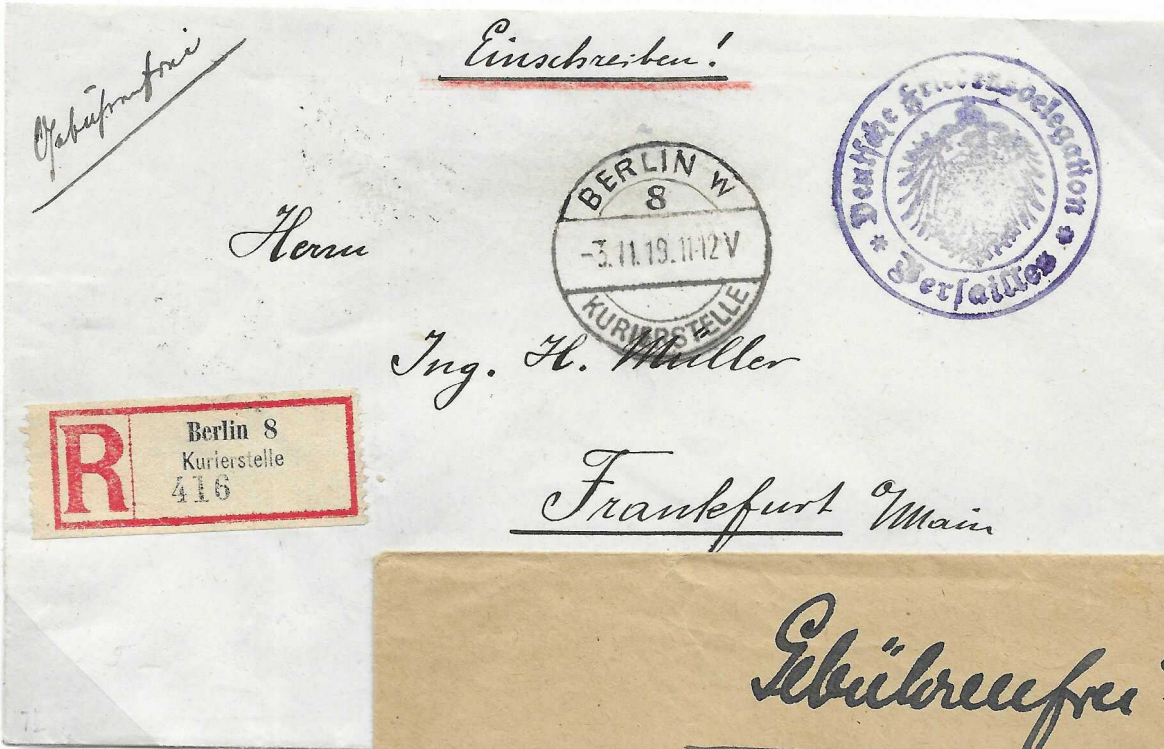 Gebührenfrei
Einschreiben!
Deutsche Friedensdelegation
* Versailles *
BERLIN W
8
-3.11.19.11-12V
KURIERSTELLE
Herrn
Ing. H. Müller
R
Berlin 8
Kurierstelle
416
Frankfurt Main
Gebührenfrei